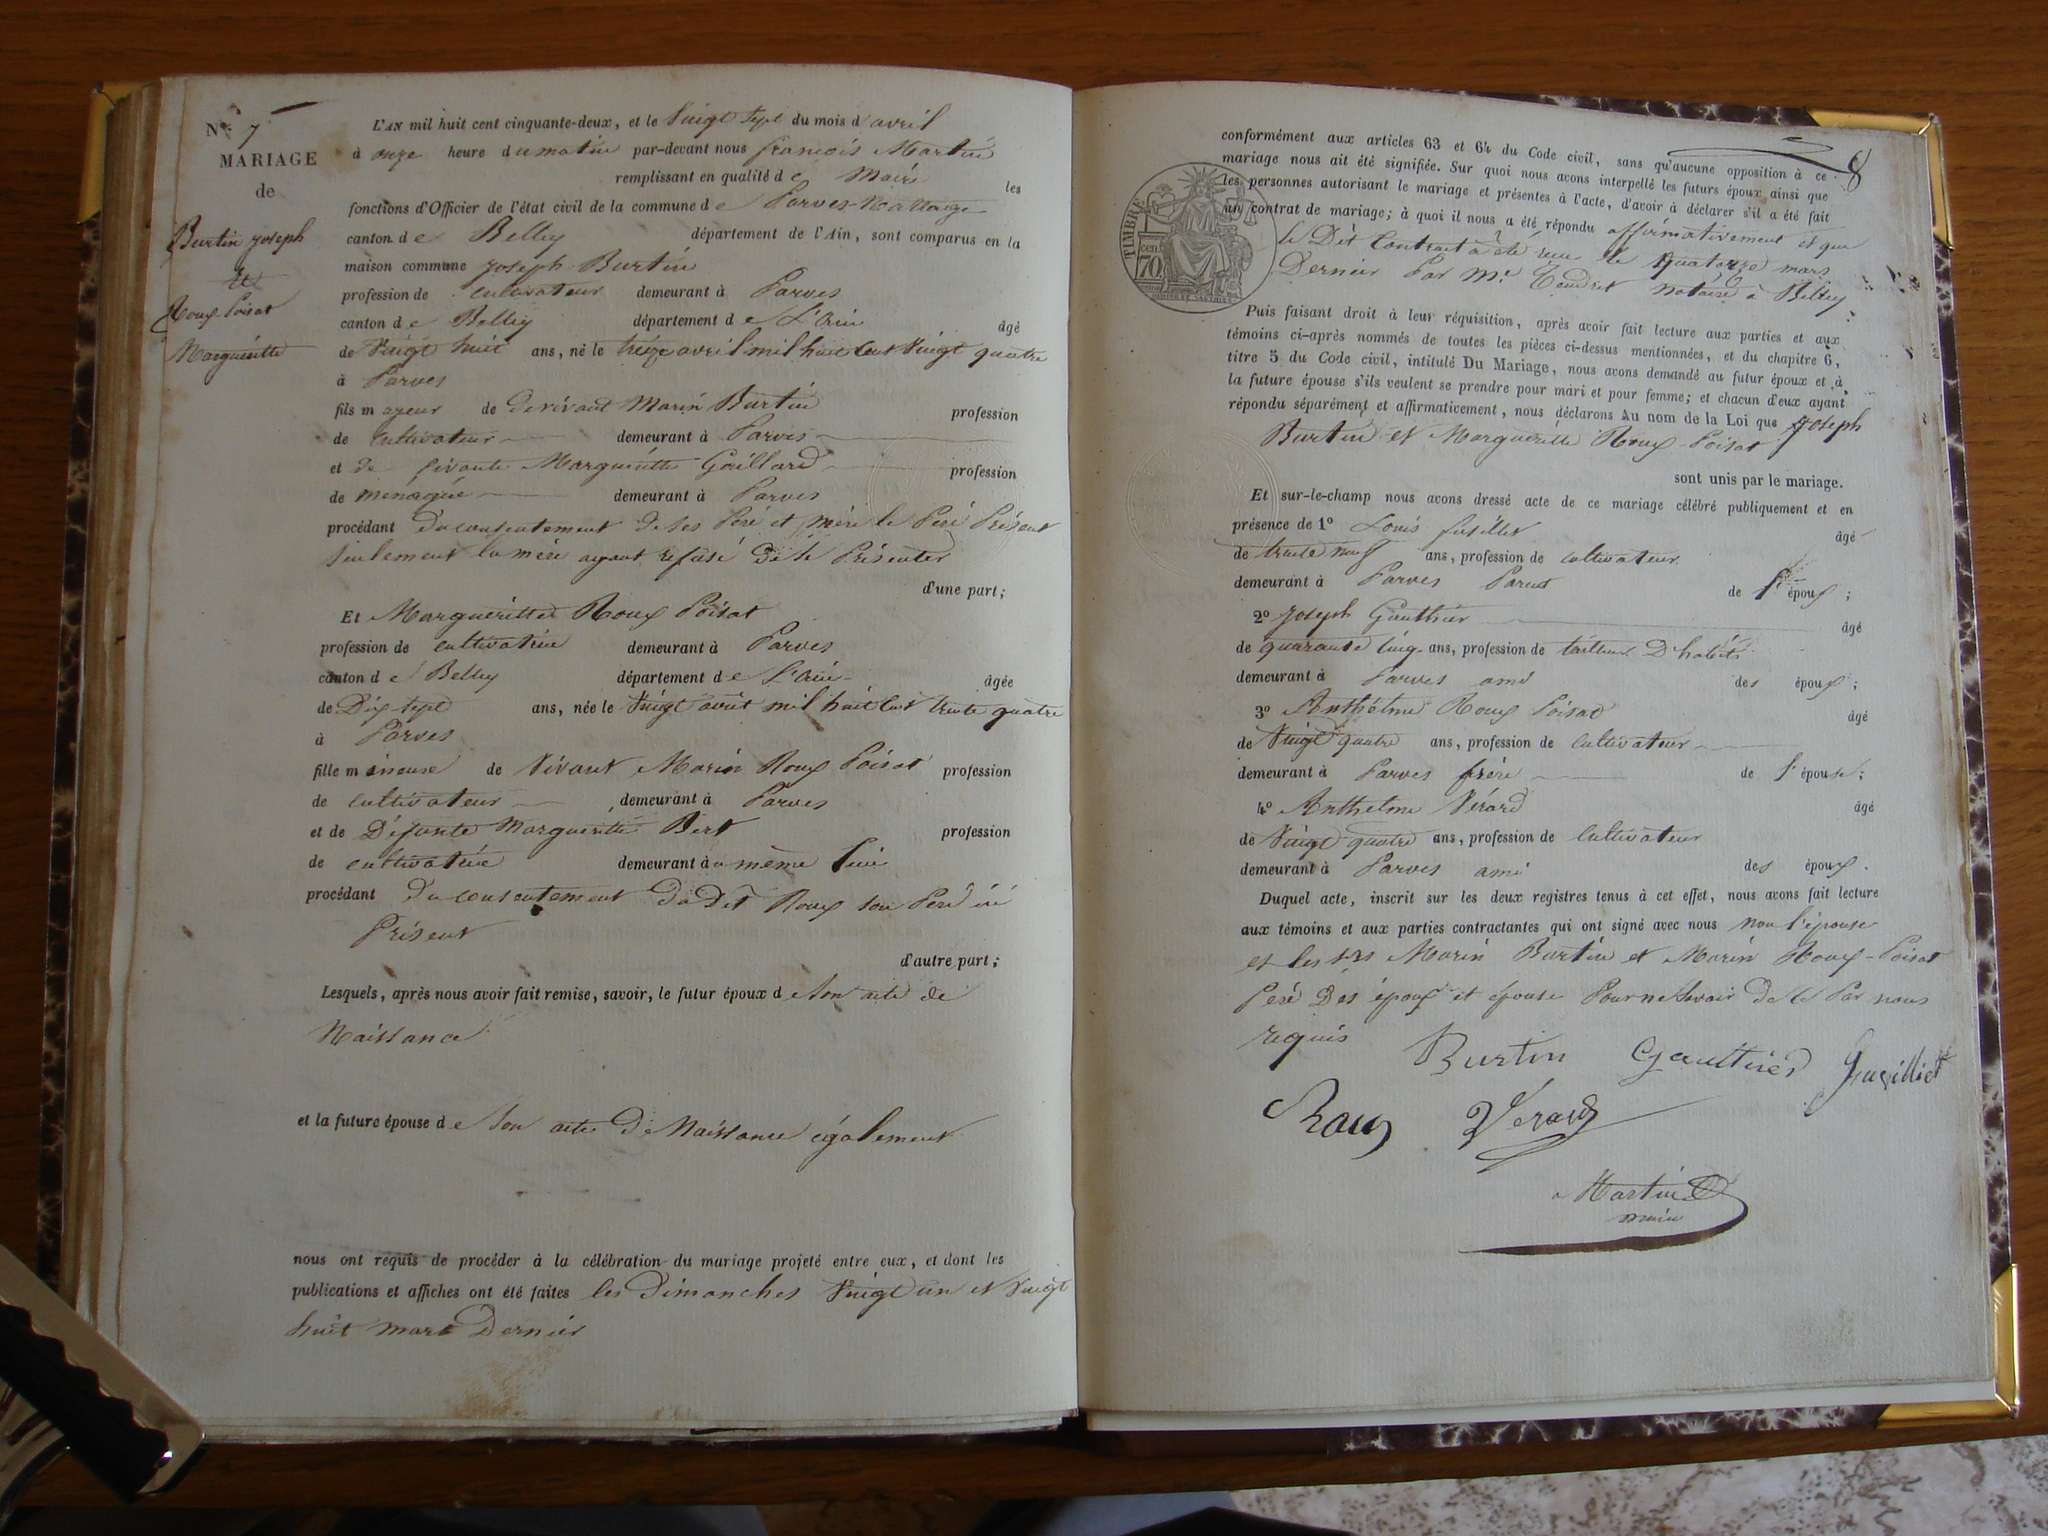 No. 7
MARIAGE
de
Burtin Joseph
et
Roux Poisat
Marguéritte
L'AN mil huit cent cinquante-deux, et le Vaigt sept du mois d'avril
à onze heure du matin par-devant nous françois Martin
remplissant en qualité de Maire les
fonctions d'Officier de l'état civil de la commune de Parves-Nattage
canton de Belley département de l'Ain, sont comparus en la
maison commune Joseph Burtin
profession de cultivateur demeurant à Parves
canton de Belley département de L'Ain âgé
de Vaigt huit ans, né le treize avril mil huit Cent Vaigt quatre
à Parves
fils majeur de devivant Marin Burtin profession
de cultivateur demeurant à Parves
et de vivante Marguéritte Goillard profession
de menagée demeurant à Parves
procédant du consentement de ses Peré et mère le Peré Présent
seulement la mère ayant refusé de se Présenter
d'une part;
Et Marguéritte Roux Poisat
profession de cultivatrice demeurant à Parves
canton de Belley département de L'Ain âgée
de Dix sept ans, née le Vaigt avril mil huit Cent trente quatre
à Parves
fille mineure de Vivant Marin Roux Poisat profession
de cultivateur demeurant à Parves
et de Défunte Marguéritte Bert profession
de cultivatrice demeurant au même lieu
procédant du consentement du Dit Roux son Peré ici
Présent
d'autre part;
Lesquels, après nous avoir fait remise, savoir, le futur époux de son acte de
Naissance
et la future épouse de son acte de Naissance également
nous ont requis de procéder à la célébration du mariage projeté entre eux, et dont les
publications et affiches ont été faites les Dimanches Vaigt un et Vaigt
huit mars Dernier
8
conformément aux articles 63 et 64 du Code civil, sans qu'aucune opposition à ce
mariage nous ait été signifiée. Sur quoi nous avons interpellé les futurs époux ainsi que
les personnes autorisant le mariage et présentes à l'acte, d'avoir à déclarer s'il a été fait
un contrat de mariage; à quoi il nous a été répondu affirmativement et que
le Dit Contract à été reçu le Quatorze mars
Dernier Par Me. Tendret notaire à Belley
TIMBRE
cen
70
Puis faisant droit à leur réquisition, après avoir fait lecture aux parties et aux
témoins ci-après nommés de toutes les pièces ci-dessus mentionnées, et du chapitre 6,
titre 5 du Code civil, intitulé Du Mariage, nous avons demandé au futur époux et à
la future épouse s'ils veulent se prendre pour mari et pour femme; et chacun d'eux ayant
répondu séparément et affirmativement, nous déclarons Au nom de la Loi que Joseph
Burtin et Marguéritte Roux-Poisat
sont unis par le mariage.
Et sur-le-champ nous avons dressé acte de ce mariage célébré publiquement et en
présence de 1º Louis âgé
de trente neuf ans, profession de cultivateur
demeurant à Parves Parent de l'époux;
2º Joseph Gauthier âgé
de quarante Cinq ans, profession de tailleur D'habits
demeurant à Parves ami des époux;
3º Anthélme Roux Poisat âgé
de Vaigt quatre ans, profession de Cultivateur
demeurant à Parves frére de l'épouse;
4º Anthelme Vérard âgé
de Vaigt quatre ans, profession de Cultivateur
demeurant à Parves ami des époux.
Duquel acte, inscrit sur les deux registres tenus à cet effet, nous avons fait lecture
aux témoins et aux parties contractantes qui ont signé avec nous non l'épouse
et les srs Marin Burtin et Marin Roux-Poisat
Peré Des époux et épouse Pour ne savoir de ce Par nous
requis
Burtin Gaultier
Roux Verard
Martin
maire